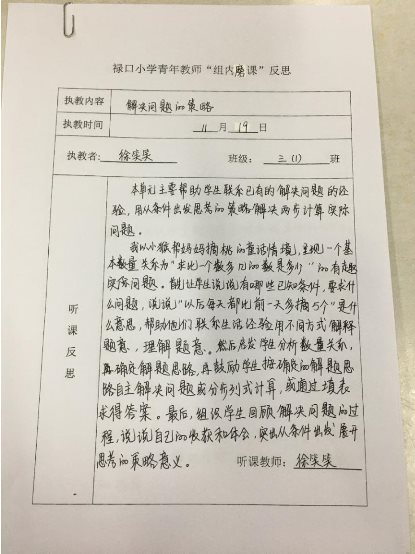 禄口小学青年教师“组内磨课”反思
执教内容 解决问题的策略
执教时间 11 月 19 日
执教者: 徐柴柴 班级: 三(1) 班
听课反思
本单元主要帮助学生联系已有的解决问题的经
验,用从条件出发思考的策略解决两步计算实际
问题。
我以小猴帮妈妈摘桃的童话情境,呈现一个基
本数量关系为“求比一个数多几的数是多少”的有趣
实际问题。首先让学生说说有哪些已知条件,要求什
么问题,说说“以后每天都比前一天多摘5个”是什
么意思,帮助他们联系生活经验用不同方式解释
题意、理解题意。然后启发学生分析数量关系,
再确定解题思路,再鼓励学生按确定的解题思
路自主解决问题或分析列式计算,或通过填表
求得答案。最后,组织学生回顾解决问题的过
程,说说自己的收获和体会,突出从条件出发展开
思考的策略意义。
听课教师: 徐柴柴